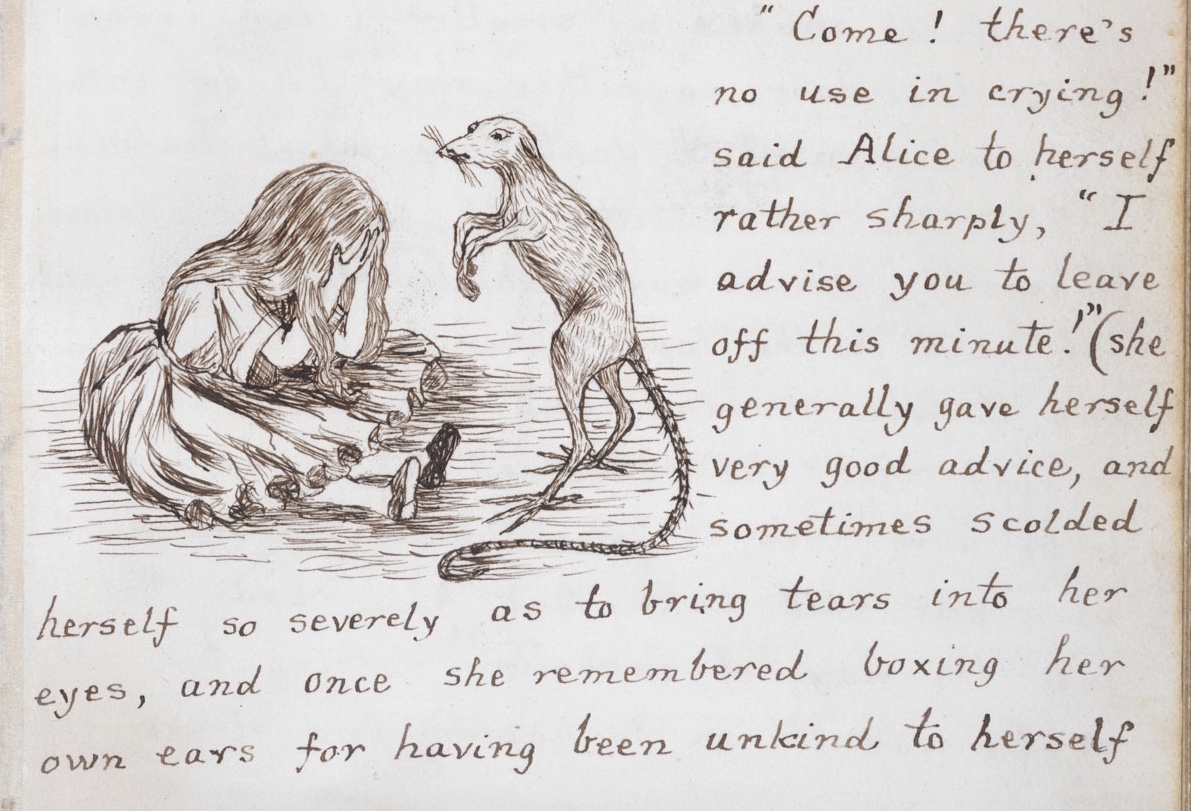 "Come! there's
no use in crying!"
said Alice to herself
rather sharply, "I
advise you to leave
off this minute!" (she
generally gave herself
very good advice, and
sometimes scolded
herself so severely as to bring tears into her
eyes, and once she remembered boxing her
own ears for having been unkind to herself